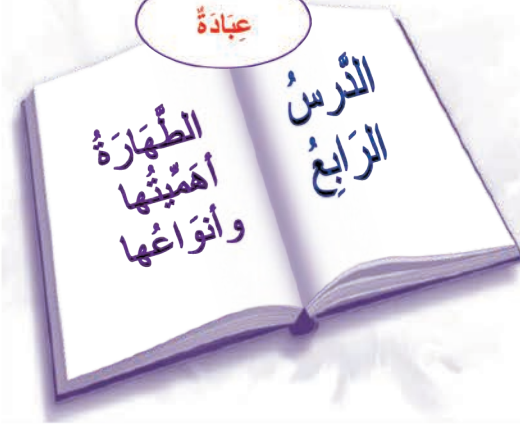 عِبَادَةٌ
الدَّرسُ
الرَابِعُ
الطَّهَارَةُ
أهَمِّيَّتُها
وأنوَاعُها